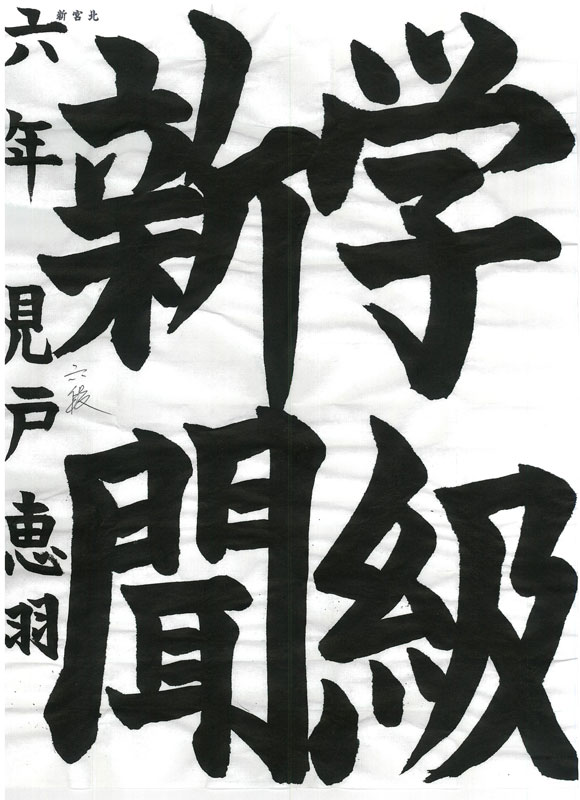 学級
新聞
六年 見戸恵羽
六段
新宮北